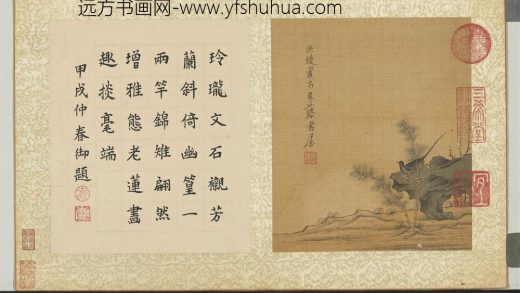 远方书画网-www.yfshuhua.com
洪綬畫
玲瓏文石襯芳
蘭斜倚幽篁一
兩竿錦雉翩然
增雅態老蓮畫
趣掞毫端
甲戌仲春御題